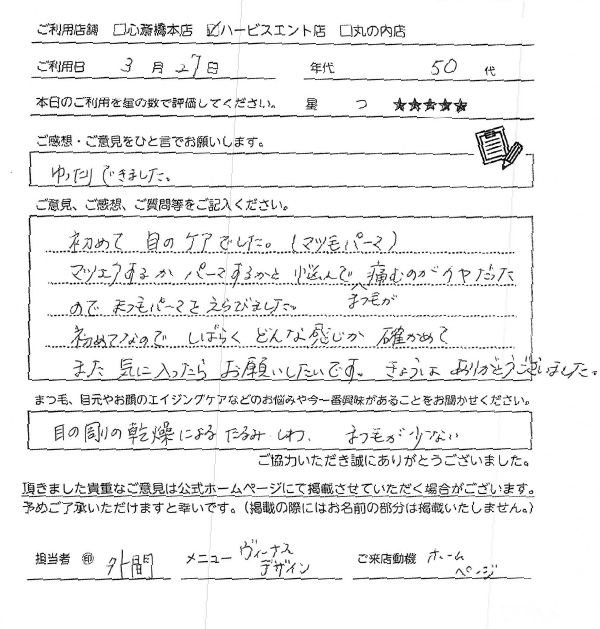 ご利用店舗 □心斎橋本店 ☑ハービスエント店 □丸の内店
ご利用日 3月27日 年代 50代
本日のご利用を星の数で評価してください。 星 つ ★★★★★
ご感想・ご意見をひと言でお願いします。
ゆったりできました。
ご意見、ご感想、ご質問等をご記入ください。
初めて 目の ケアでした。(マツ毛パーマ)
マツエクするか パーマするかと 悩んで 痛むのがイヤだった
まつ毛が
ので まつ毛パーマをえらびました。
初めてなので しばらく どんな感じか 確かめて
また 気に入ったら お願いしたいです。 きょうは ありがとうございました。
まつ毛、目元やお顔のエイジングケアなどのお悩みや今一番興味があることをお聞かせください。
目の周りの乾燥による たるみ しわ、 まつ毛が少ない
ご協力いただき誠にありがとうございました。
頂きました貴重なご意見は公式ホームページにて掲載させていただく場合がございます。
予めご了承いただけますと幸いです。(掲載の際にはお名前の部分は掲載いたしません。)
担当者 ㊞ 外間 メニュー ヴィーナスデザイン ご来店動機 ホームページ